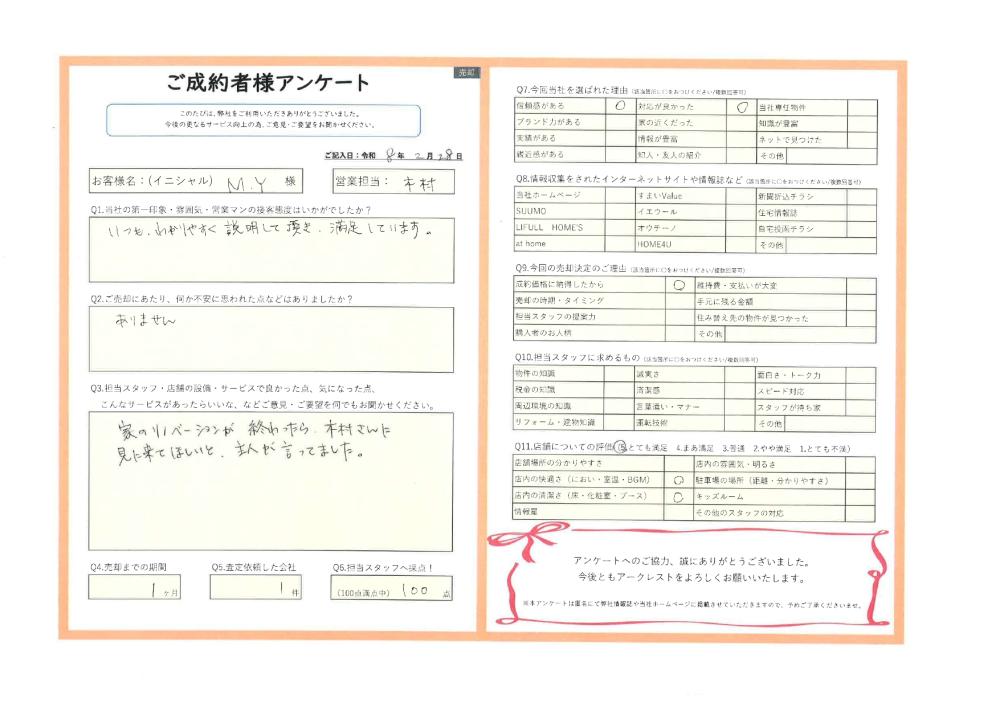 売却
ご成約者様アンケート
このたびは、弊社をご利用いただきありがとうございました。
今後の更なるサービス向上の為、ご意見・ご要望をお聞かせください。
ご記入日：令和 8 年 2 月 28 日
お客様名：(イニシャル) M.Y 様
営業担当： 木村
Q1.当社の第一印象・雰囲気・営業マンの接客態度はいかがでしたか？
いつも、わかりやすく説明して頂き、満足しています。
Q2.ご売却にあたり、何か不安に思われた点などはありましたか？
ありません
Q3.担当スタッフ・店舗の設備・サービスで良かった点、気になった点、
こんなサービスがあったらいいな、などご意見・ご要望を何でもお聞かせください。
家のリノベーションが終わったら、木村さんに
見に来てほしいと、主人が言ってました。
Q4.売却までの期間
1 ヶ月
Q5.査定依頼した会社
1 件
Q6.担当スタッフへ採点！
(100点満点中) 100 点
Q7.今回当社を選ばれた理由 (該当箇所に○をおつけください/複数回答可)
信頼感がある ○ 対応が良かった ○ 当社専任物件
ブランド力がある 家の近くだった 知識が豊富
実績がある 情報が豊富 ネットで見つけた
親近感がある 知人・友人の紹介 その他
Q8.情報収集をされたインターネットサイトや情報誌など (該当箇所に○をおつけください/複数回答可)
当社ホームページ すまいValue 新聞折込チラシ
SUUMO イエウール 住宅情報誌
LIFULL HOME'S オウチーノ 自宅投函チラシ
at home HOME4U その他
Q9.今回の売却決定のご理由 (該当箇所に○をおつけください/複数回答可)
成約価格に納得したから ○ 維持費・支払いが大変
売却の時期・タイミング 手元に残る金額
担当スタッフの提案力 住み替え先の物件が見つかった
購入者のお人柄 その他
Q10.担当スタッフに求めるもの (該当箇所に○をおつけください/複数回答可)
物件の知識 誠実さ 面白さ・トーク力
税金の知識 清潔感 スピード対応
周辺環境の知識 言葉遣い・マナー スタッフが持ち家
リフォーム・建物知識 運転技術 その他
Q11.店舗についての評価(5.とても満足 4.まあ満足 3.普通 2.やや満足 1.とても不満)
店舗場所の分かりやすさ 店内の雰囲気・明るさ
店内の快適さ（におい・室温・BGM） ○ 駐車場の場所（距離・分かりやすさ）
店内の清潔さ（床・化粧室・ブース） ○ キッズルーム
情報量 その他のスタッフの対応
アンケートへのご協力、誠にありがとうございました。
今後ともアークレストをよろしくお願いいたします。
※本アンケートは匿名にて弊社情報誌や当社ホームページに掲載させていただきますので、予めご了承くださいませ。